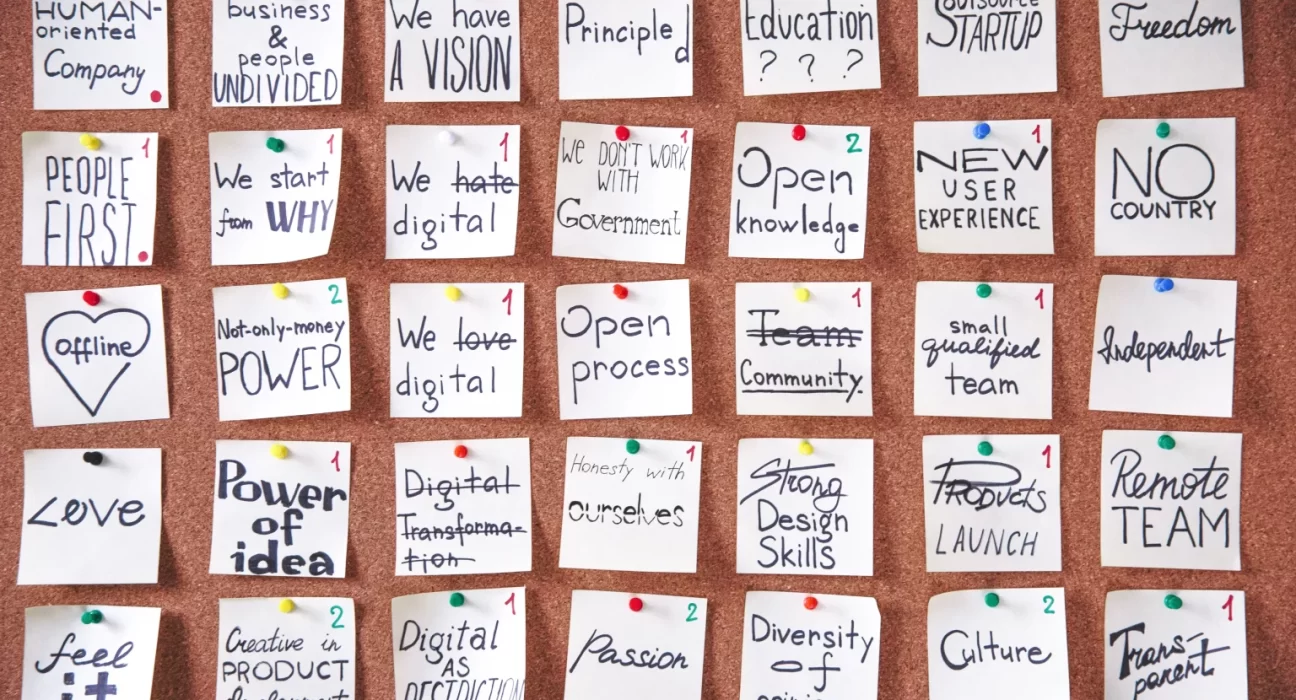 HUMAN-
oriented
Company
business
&
people
UNDIVIDED
We have
A VISION
Principled
Education
? ? ?
STARTUP
Freedom
1
PEOPLE
FIRST.
1
We start
from WHY
1
We hate
digital
1
We DON'T WORK
WITH
Government
2
Open
knowledge
1
NEW
USER
EXPERIENCE
NO
COUNTRY
offline
2
Not-only-money
POWER
1
We love
digital
Open
process
1
Team
Community.
1
small
qualified
team
Independent
Love
1
Power
of
idea
Digital
Transforma-
tion
1
Honesty with
ourselves
Strong
Design
Skills
1
PRODUCTS
LAUNCH
Remote
TEAM
feel
it
2
Creative in
PRODUCT
1
Digital
AS
2
Passion
Diversity
of
2
Culture
1
Trans-
parent